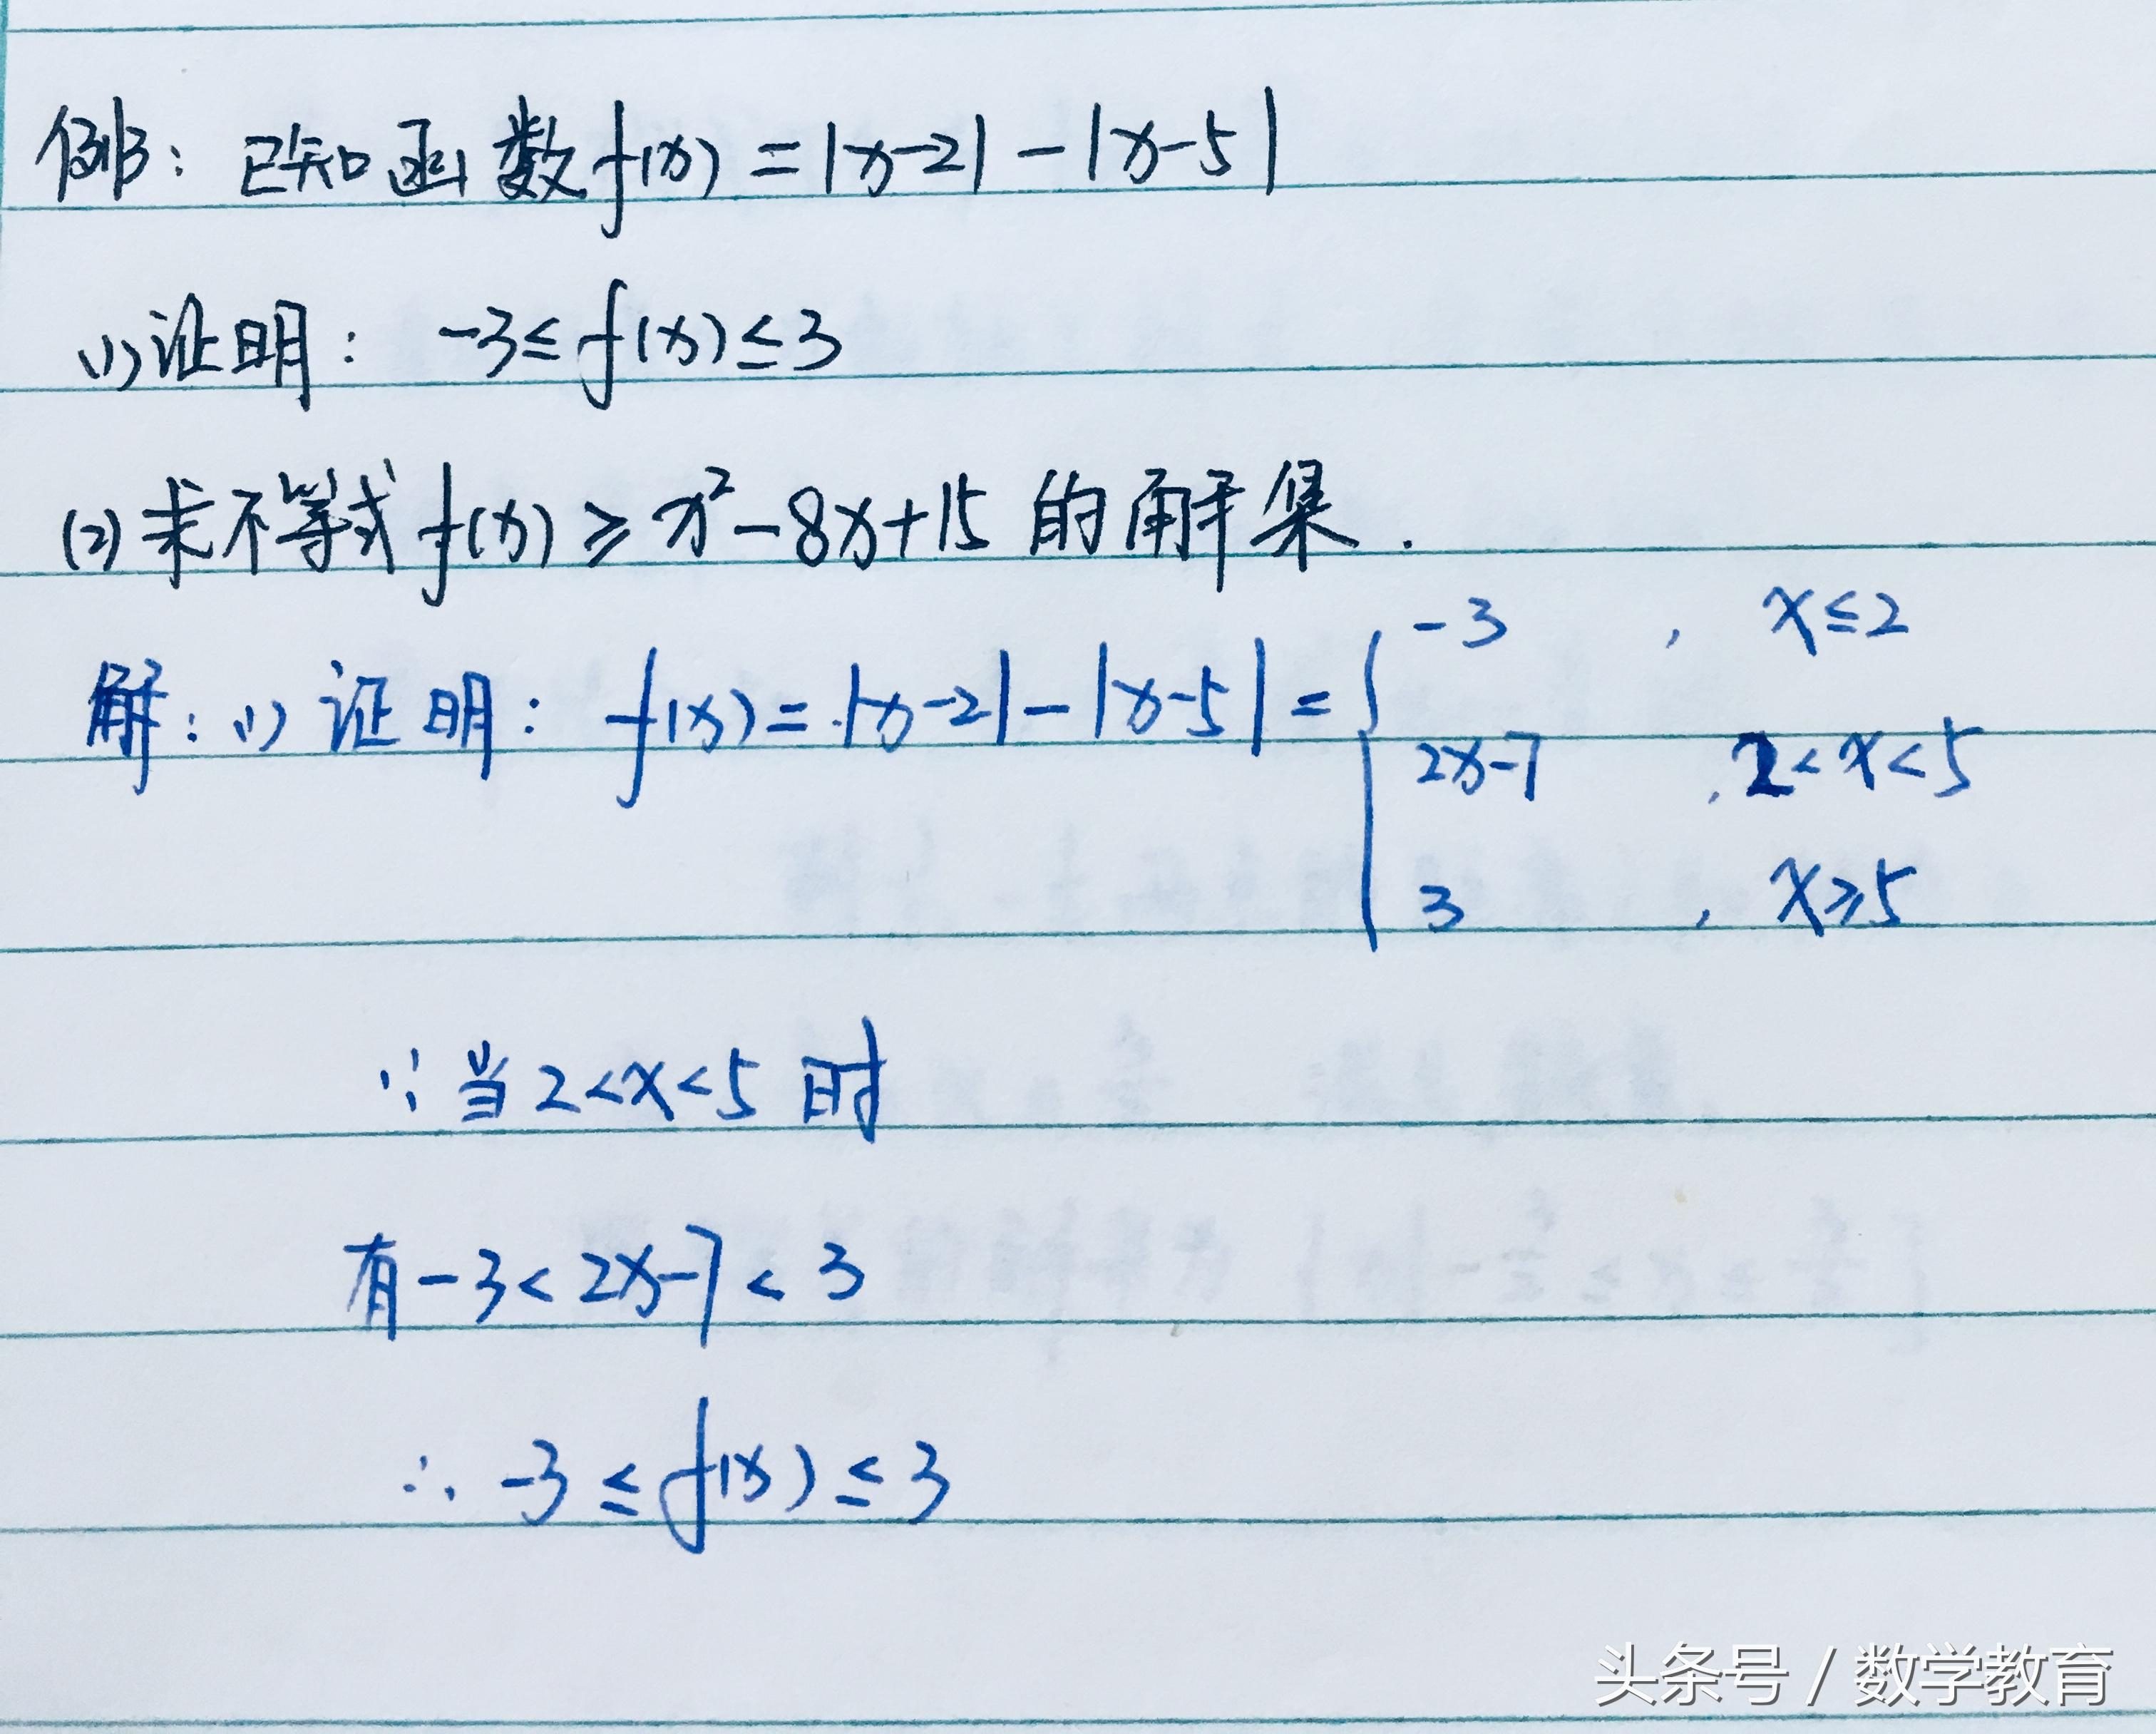 例3: 已知函数f(x)=|x-2|-|x-5|
(1)证明: -3≤f(x)≤3
(2)求不等式f(x)≥x²-8x+15的解集.
解:(1)证明: f(x)=|x-2|-|x-5|={ -3 , x≤2
2x-7 , 2<x<5
3 , x≥5
∵当2<x<5时
有-3<2x-7<3
∴ -3≤f(x)≤3
头条号 / 数学教育